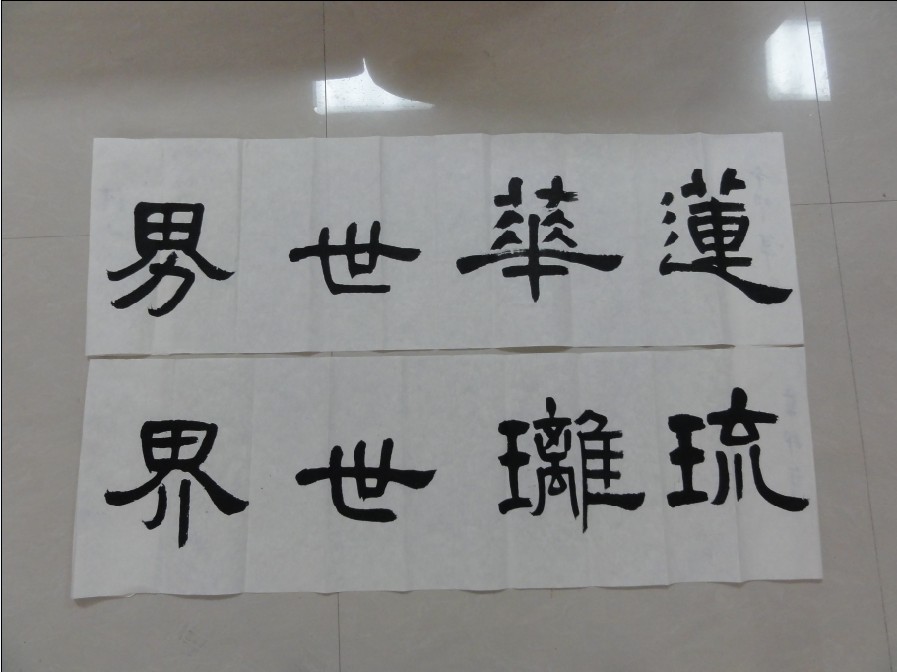 蓮華世界
琉璃世界